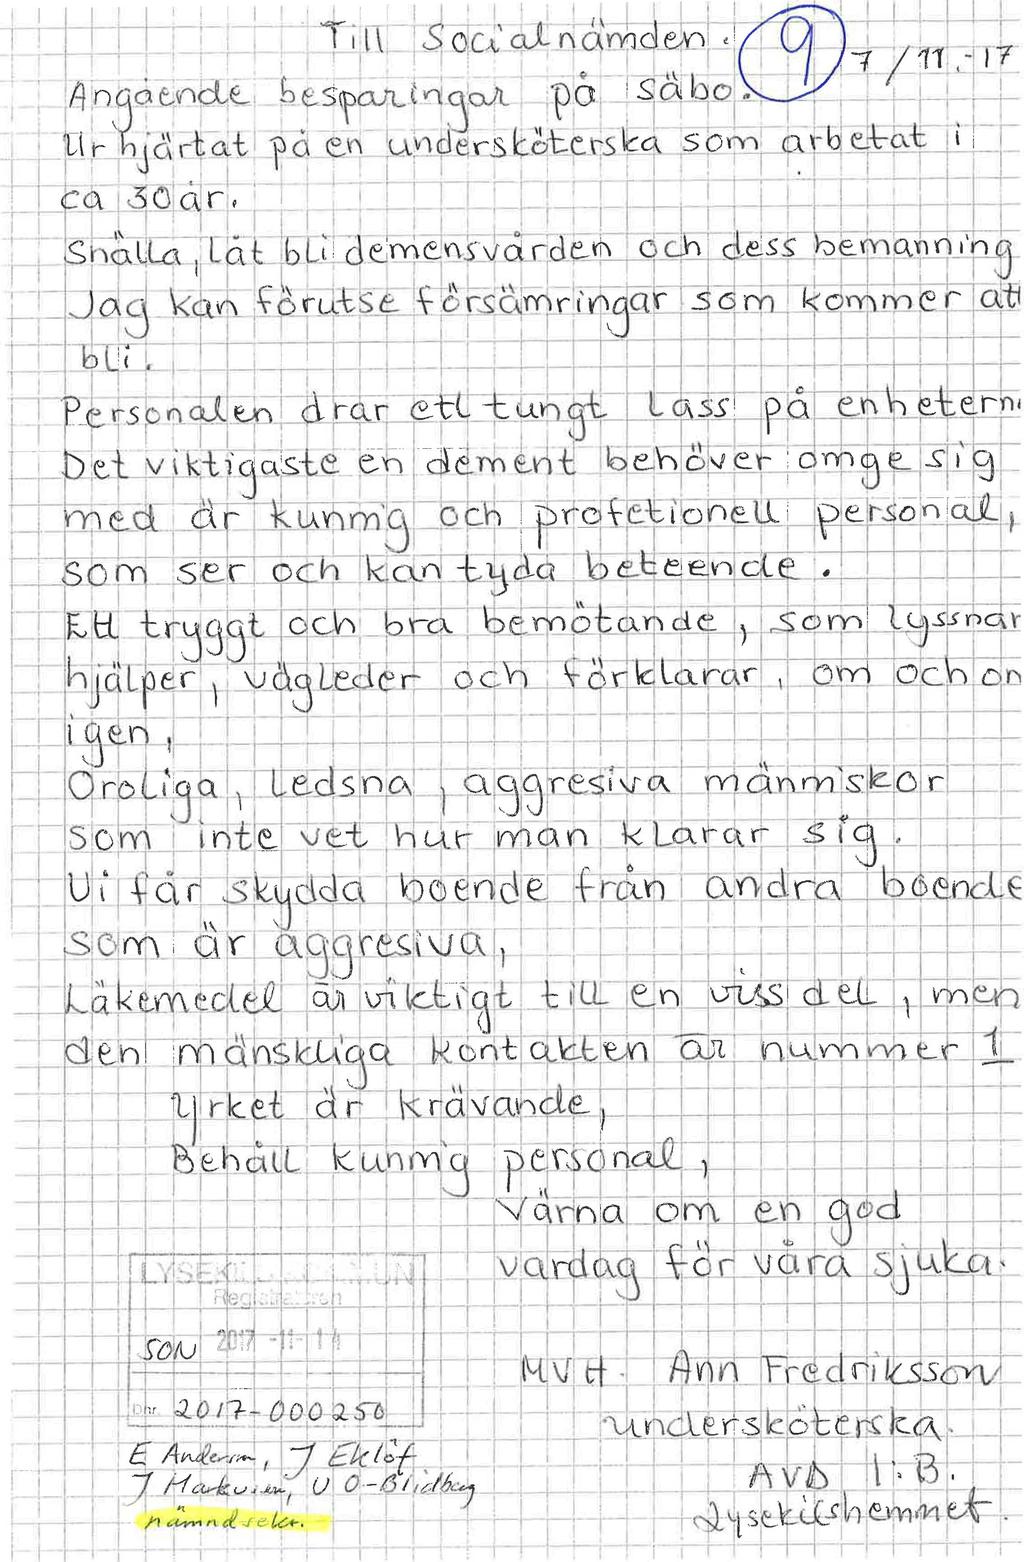 Till Socialnämden. 9 7/11.-17
Angående besparingar på säbo.
Ur hjärtat på en undersköterska som arbetat i
ca 30 år.
Snälla, låt bli demensvården och dess bemanning
Jag kan förutse försämringar som kommer att
bli.
Personalen drar ett tungt lass på enhetern
Det viktigaste en dement behöver omge sig
med är kunnig och profetionell personal,
som ser och kan tyda beteende.
Ett tryggt och bra bemötande, som lyssnar
hjälper, vägleder och förklarar, om och om
igen,
Oroliga, ledsna, aggresiva människor
som inte vet hur man klarar sig.
Vi får skydda boende från andra boende
som är aggresiva,
Läkemedel är viktigt till en viss del, men
den mänskliga kontakten är nummer 1
Yrket är krävande,
Behåll kunnig personal,
Värna om en god
vardag för våra sjuka.
LYSEKILS KOMMUN
Registraturen
SON 2017-11-14
Dnr. 2017-000250
MVH. Ann Fredriksson
undersköterska.
AVD 1:B.
Lysekilshemmet.
E Anderson, J Eklöf
J Markusen, U O-Blidberg
nämndsekr.